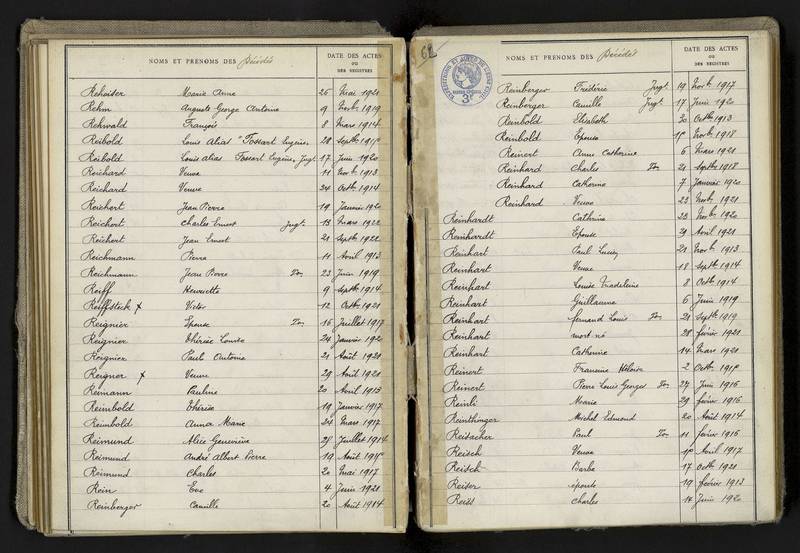 NOMS ET PRÉNOMS DES Décédés
DATE DES ACTES
OU
DES REGISTRES
Rehoiser Marie Anne 26 Mai 1921
Rehm Auguste George Antoine 9 Novb. 1919
Rehwald François 8 Mars 1914
Reibold Louis alias "Tossart Eugène" 28 Septb.
Reibold Louis alias Tossart Eugène, Jugt. 17 Juin 1920
Reichard Veuve 11 Novb. 1913
Reichard Veuve 24 Octb. 1914
Reichert Jean Pierre 19 Janvier 1920
Reichert Charles Ernest Jugt. 13 Mars 1922
Reichert Jean Ernest 21 Septb. 1922
Reichmann Pierre 11 Avril 1913
Reichmann Jean Pierre Ton 23 Juin 1919
Reiff Henriette 9 Septb. 1914
Reiffsteck x Victor 12 Octb. 1921
Reignier Epouse Ton 16 Juillet 1917
Reignier Thérèse Louise 24 Janvier 1920
Reignier Paule Antoine 21 Août 1921
Reigner x Veuve 29 Août 1921
Reimann Pauline 20 Avril 1913
Reimbold Thérèse 19 Janvier 1917
Reimbold Anna Marie 24 Mars 1917
Reimund Alice Geneviève 28 Juillet 1914
Reimund André Albert Pierre 19 Août
Reimund Charles 20 Mai 1917
Rein Eve 4 Juin 1921
Reinberger Camille 20 Août 1914
62
NOMS ET PRÉNOMS DES Décédés
DATE DES ACTES
OU
DES REGISTRES
Reinberger Frédéric Jugt. 19 Novb. 1917
Reinberger Camille Jugt. 17 Juin 1920
Reinbold Elisabeth 30 Octb. 1913
Reinbold Epouse Novb. 1918
Reinert Anne Catherine 6 Mars 1921
Reinhard Charles Ton 21 Septb. 1918
Reinhard Catherine 7 Janvier 1920
Reinhard Veuve 23 Novb. 1921
Reinhardt Cathrine 23 Novb. 1920
Reinhardt Epouse 29 Avril 1921
Reinhart Paul Lucien 21 Novb. 1913
Reinhart Veuve 18 Septb. 1914
Reinhart Louise Madeleine 8 Octb. 1914
Reinhart Guillaume 6 Juin 1919
Reinhart Fernand Louis Ton 21 Septb. 1919
Reinhart mort né 28 février 1921
Reinhart Catherine 14 Mars 1921
Reinert Francine Héloïse 2 Octb.
Reinert Pierre Louis Georges Ton 27 Juin 1916
Reinli Marie 29 février 1916
Reinthinger Michel Edmond 20 Août 1914
Reisacher Paul Ton 11 février 1916
Reisch Veuve Avril 1917
Reisch Barbe 17 Octb. 1921
Reiser épouse 19 février 1913
Reiss Charles 14 Juin 1920